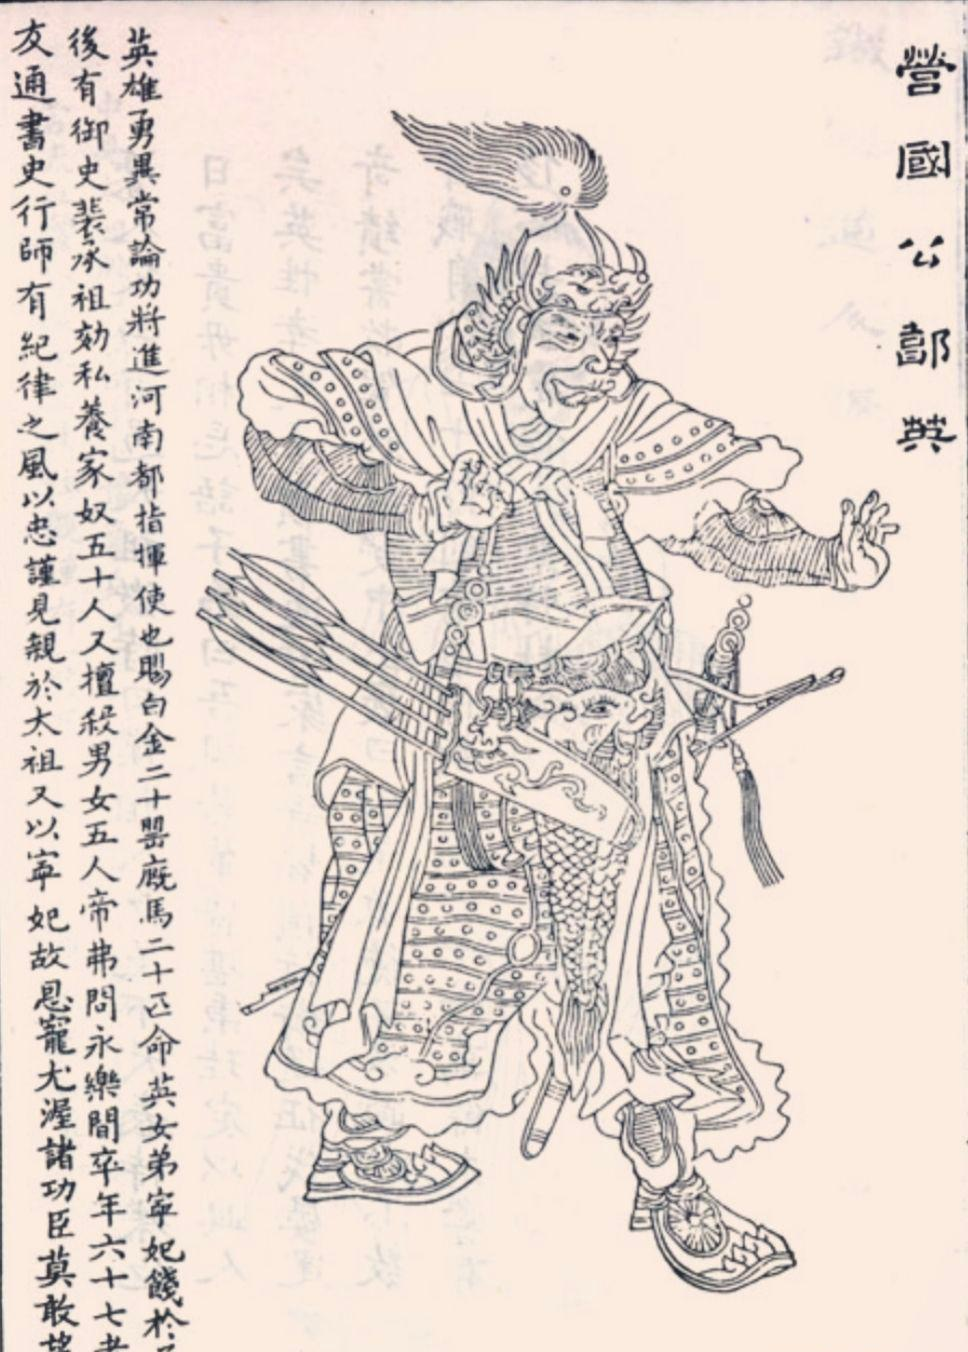 營國公郭英
英雄勇異常論功將進河南都指揮使也賜白金二十罌廐馬二十匹命英女弟寧妃餞於
後有御史裴承祖劾私養家奴五十人又擅殺男女五人帝弗問永樂間卒年六十七孝
友通書史行師有紀律之風以忠謹見親於太祖又以寧妃故恩寵尤渥諸功臣莫敢望